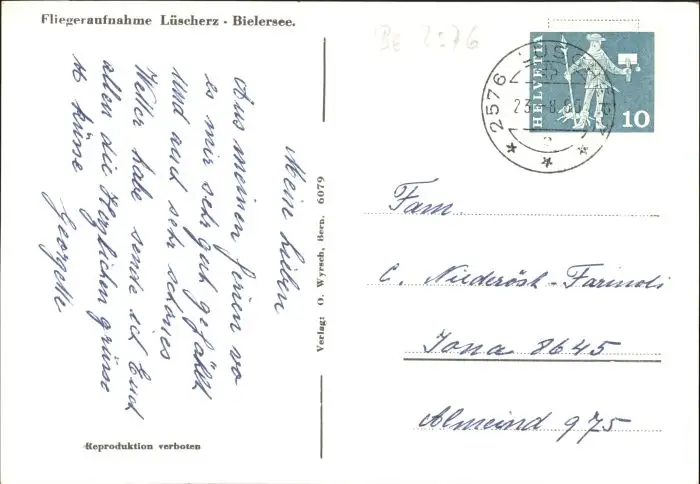 Fliegeraufnahme Lüscherz - Bielersee.
Be 2576
HELVETIA
10
2576
23.-8.66
Meine Lieben
Aus meinen ferien wo
es mir sehr gut gefällt
und auch sehr schönes
Wetter habe sende ich Euch
allen die Herzlichen grüsse
+ küsse
Georgette
Verlag: O. Wyrsch, Bern. 6079
Fam.
C. Niederöst-Farinoli
Jona 8645
Almeind 975
Reproduktion verboten